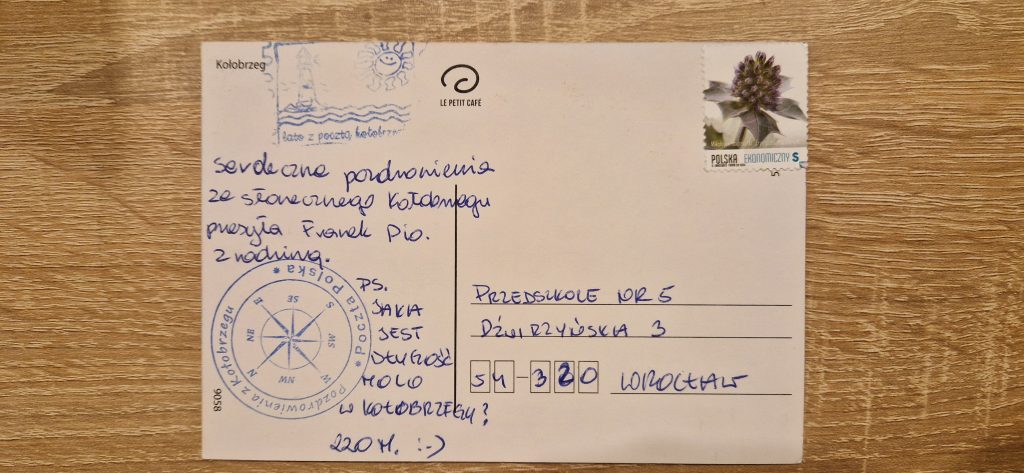 Kołobrzeg
lato z pocztą kołobrzeg
LE PETIT CAFÉ
POLSKA EKONOMICZNY S
serdeczne pozdrowienia
ze słonecznego Kołobrzegu
przesyła Franek Pio.
z rodziną.
PS.
JAKA
JEST
DŁUGOŚĆ
MOLO
W KOŁOBRZEGU?
220 M. :-)
Poczta Polska
Pozdrowienia z Kołobrzegu
N NE E SE S SW W NW
9058
PRZEDSZKOLE NR 5
DŹWIRZYŃSKA 3
54-320 WROCŁAW